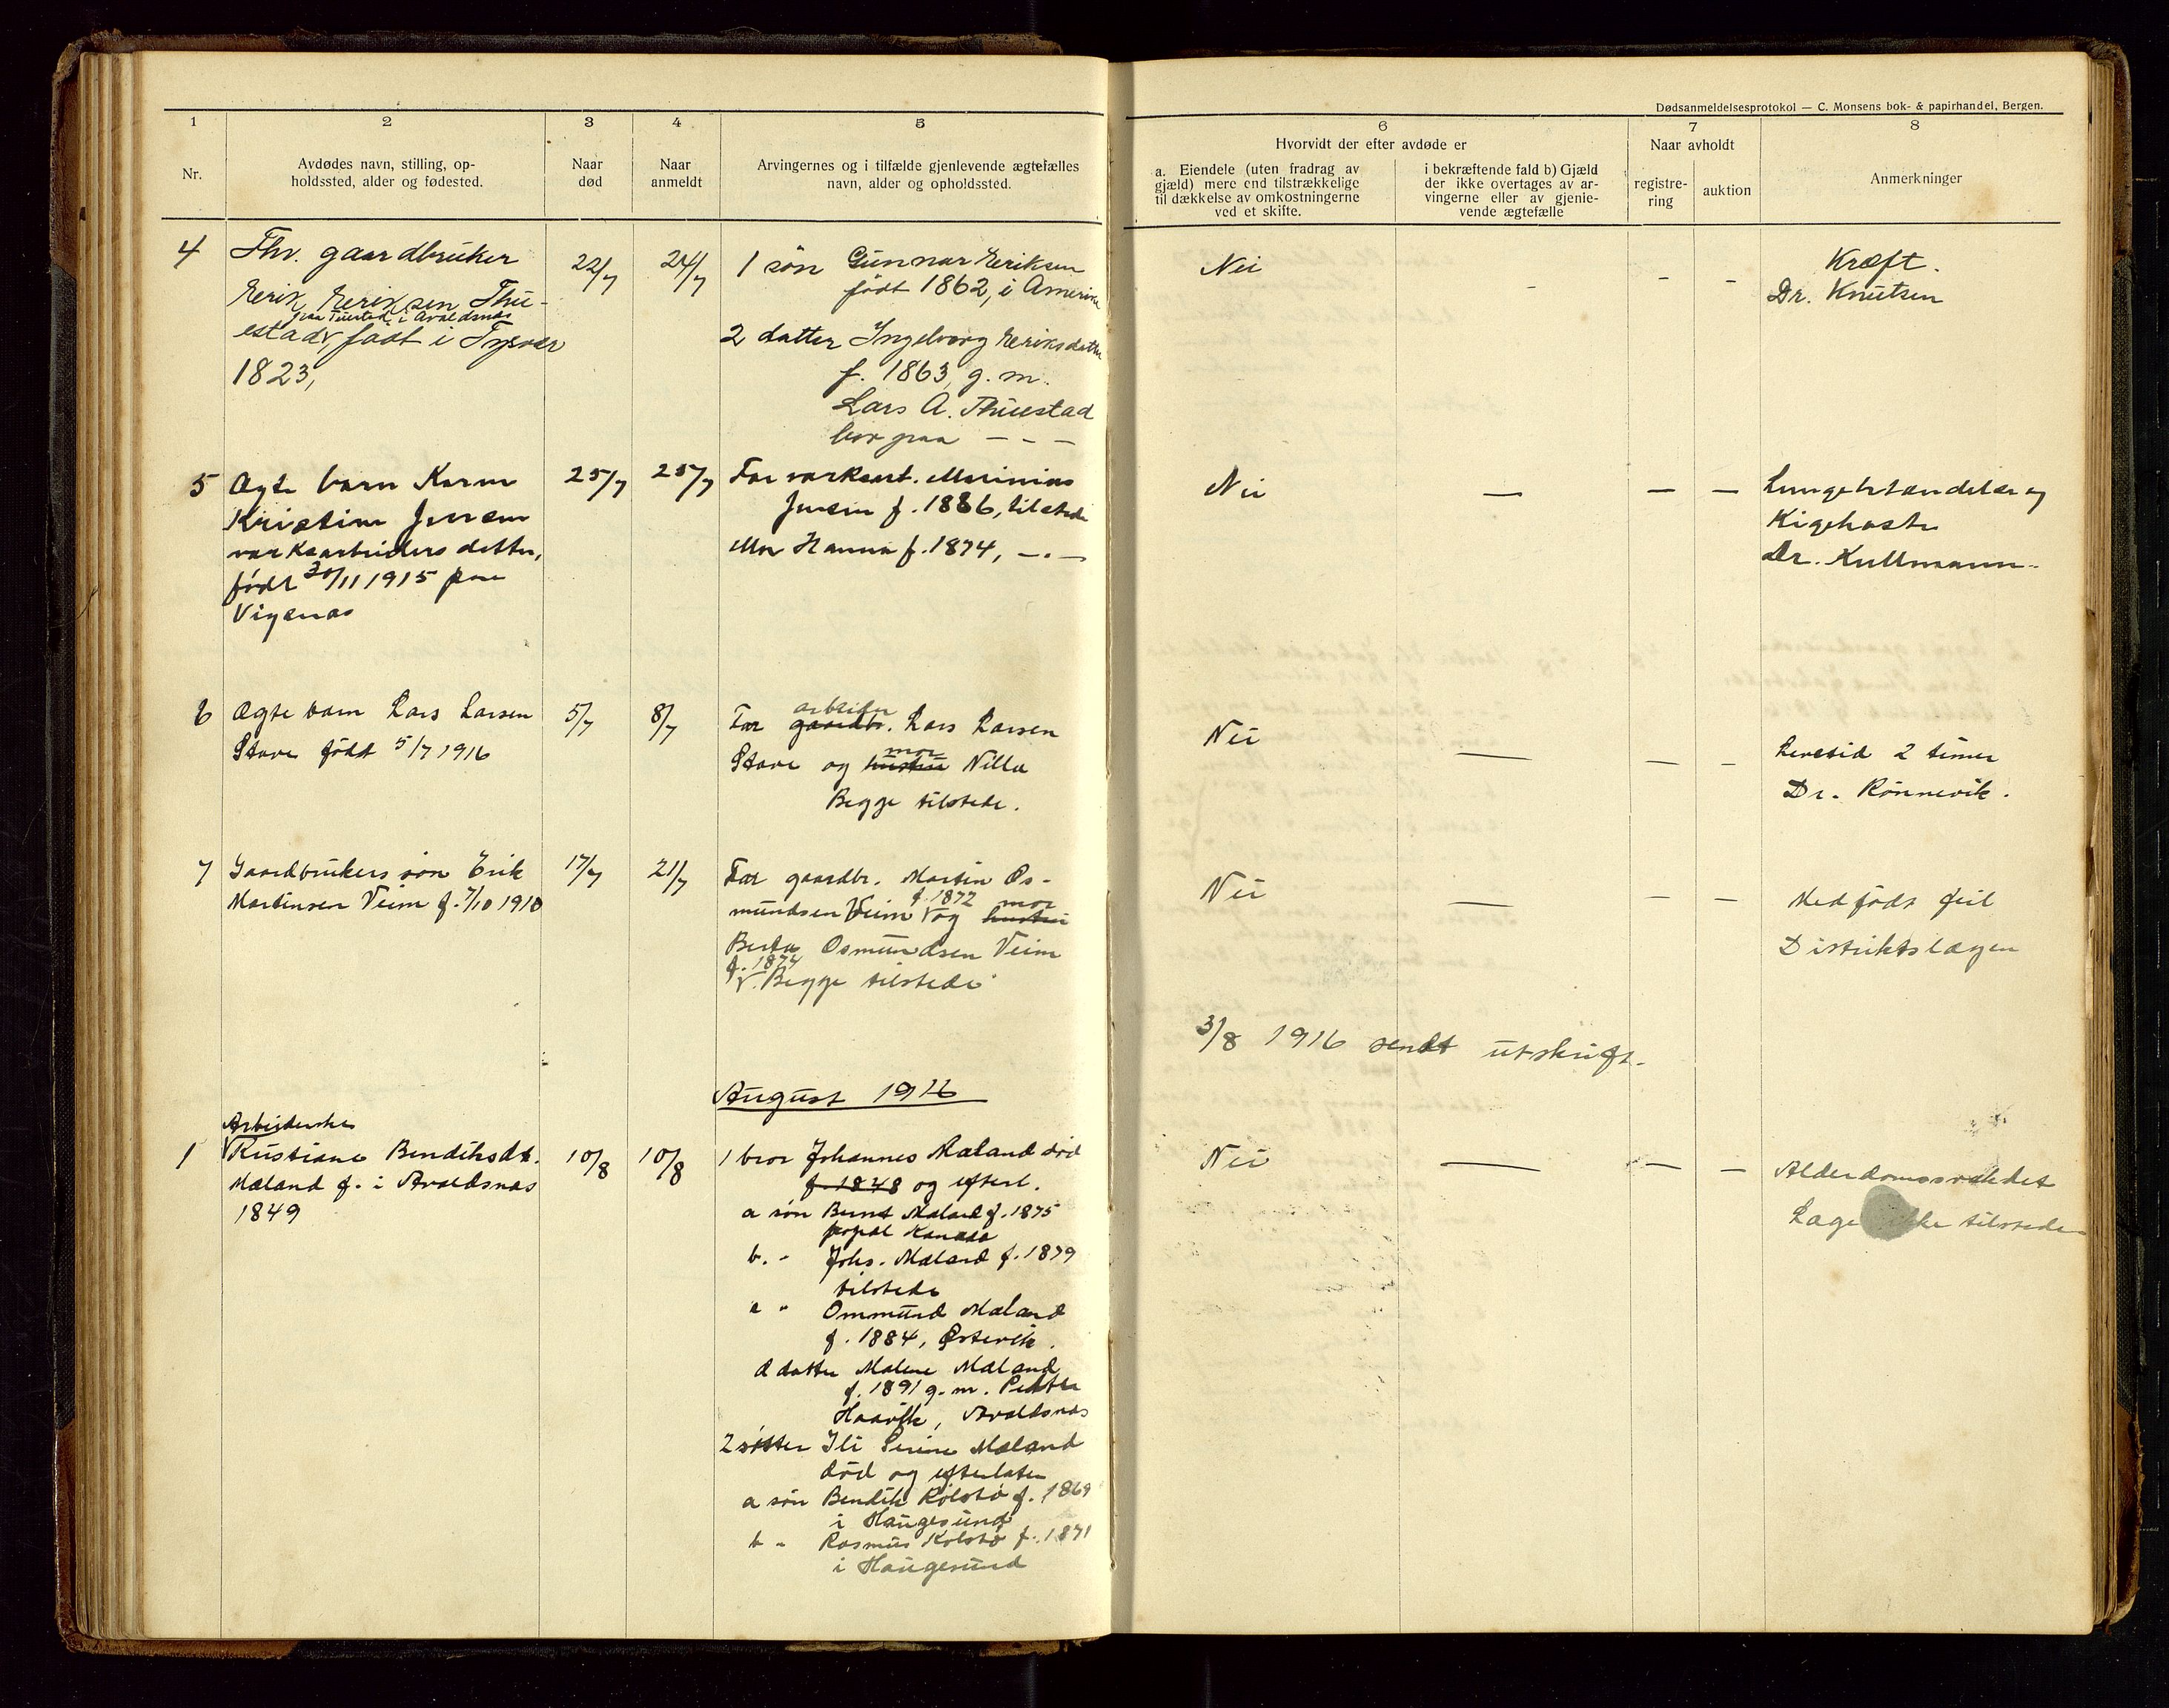 Dødsanmeldelsesprotokol — C. Monsens bok- & papirhandel, Bergen.
1 2 3 4 5 6 7 8
Nr.
Avdødes navn, stilling, op-
holdssted, alder og fødested.
Naar
død
Naar
anmeldt
Arvingernes og i tilfælde gjenlevende ægtefælles
navn, alder og opholdssted.
Hvorvidt der efter avdøde er
a. Eiendele (uten fradrag av
gjæld) mere end tilstrækkelige
til dækkelse av omkostningerne
ved et skifte.
i bekræftende fald b) Gjæld
der ikke overtages av ar-
vingerne eller av gjenle-
vende ægtefælle
Naar avholdt
registre-
ring
auktion
Anmerkninger
4
Fhv. gaardbruker
Eerik Eeriksen Thu-
paa Tuestad i Avaldsnæs
estad, født i Tysvær
1823,
22/7
24/7
1 søn Gunnar Eeriksen
født 1862, i Amerika
2 datter Ingeborg Eeriksdatter
f. 1863, g. m.
Lars A. Thuestad
bor paa — - —
Nei - - -
Kræft.
Dr. Knutsen
5
Ægte barn Karen
Kristine Jensen
værksarbeiders datter,
født 30/11 1915 paa
Vigsnæs
25/7
25/7
Far værksarb. Marinius
Jensen f. 1886, tilstede
Mor Hanna f. 1874, —.—
Nei — — —
Lungebetændelse og
Kighoste
Dr. Kullmann.
6
Ægte barn Lars Larsen
Stave født 5/7 1916
5/7
8/7
arbeider
Far gaardbr. Lars Larsen
mor
Stave og hustru Nilla
Begge tilstede.
Nei — — -
Levetid 2 timer
Dr. Rønnevik.
7
Gaardbrukers søn Erik
Martinsen Veim f. 7/10 1910
17/7
21/7
Far gaardbr. Martin Os-
f. 1872 mor
mundsen Veim og hustru
Berta Osmundsen Veim
f. 1874
Begge tilstede
Nei — — -
Medfødt feil
Distriktslægen
3/8 1916 sendt utskrift.
August 1916
1
Arbeiderske
Kristiane Bendiksdt.
Mæland f. i Avaldsnæs
1849
10/8
10/8
1 bror Johannes Mæland død
f. 1848 og efterl.
a søn Bernt Mæland f. 1875
Kanada
b. - Johs. Mæland f. 1879
tilstede
c " Ommund Mæland
f. 1884, Østevik.
d datter Malene Mæland
f. 1891 g. m. Peder
Haavik, Avaldsnæs
2 søster Ili Serine Mæland
død og efterlater
a søn Bendik Kolstø f. 1869
i Haugesund
b - Rasmus Kolstø f. 1871
i Haugesund
Nei — — —
Alderdomssvækket
Læge ikke tilstede